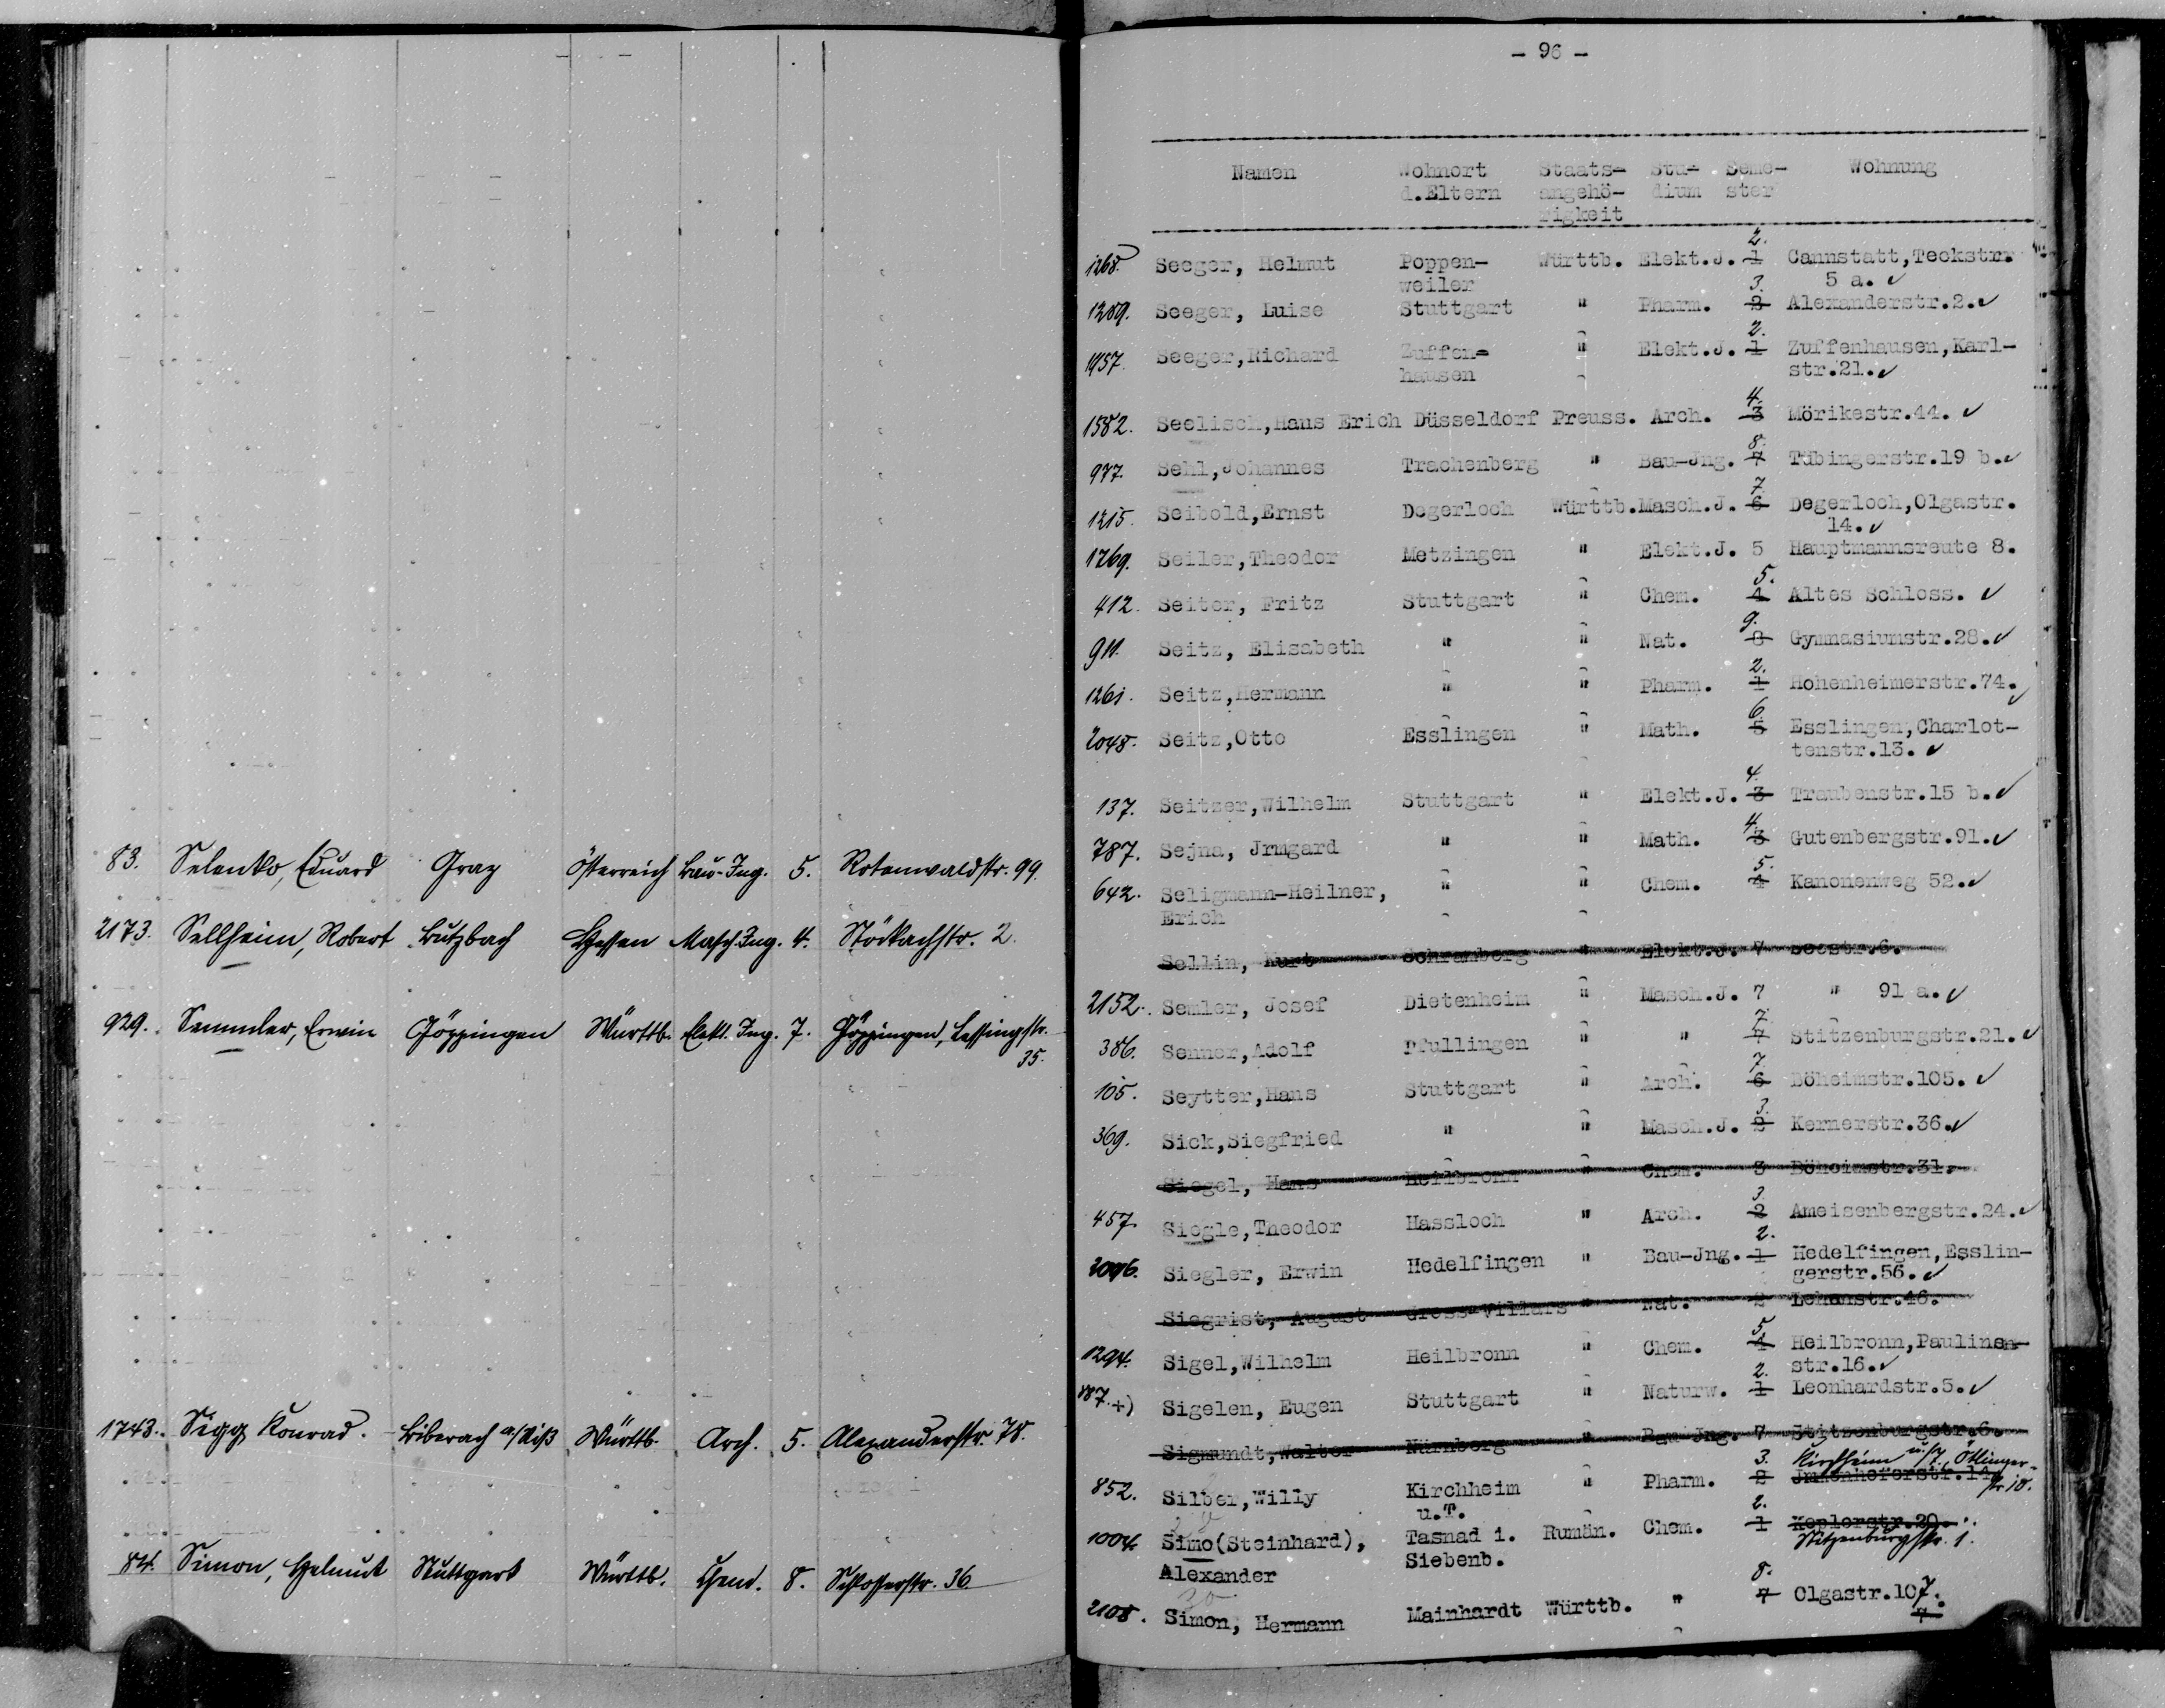 83. Selenko, Eduard Graz Österreich Bau-Ing. 5. Rotenwaldstr. 99.
2173. Sellheim, Robert Butzbach Hessen Masch.Ing. 4. Stöckachstr. 2.
929. Semmler, Erwin Göppingen Württb. Elekt. Ing. 7. Göppingen, Lessingstr.
35.
1743. Sigg Konrad. Biberach a/Riß Württb. Arch. 5. Alexanderstr. 78.
84. Simon, Helmut Stuttgart Württb. Chem. 8. Schlosserstr. 36
- 96 -
Namen Wohnort Staats- Stu- Seme- Wohnung
d.Eltern angehö- dium ster
rigkeit
2.
1268. Seeger, Helmut Poppen- Württb. Elekt.J. 1 Cannstatt,Teckstr.
weiler 5 a. ✓
3.
1289. Seeger, Luise Stuttgart " Pharm. 2 Alexanderstr.2.✓
2.
1957. Seeger,Richard Zuffen= " Elekt.J. 1 Zuffenhausen,Karl-
hausen str.21.✓
4.
1582. Seelisch,Hans Erich Düsseldorf Preuss. Arch. 3 Mörikestr.44. ✓
8.
977. Sehl,Johannes Trachenberg " Bau-Jng. 7 Tübingerstr.19 b.✓
7
1215. Seibold,Ernst Degerloch Württb.Masch.J. 6 Degerloch,Olgastr.
14.✓
1769. Seiler,Theodor Metzingen " Elekt.J. 5 Hauptmannsreute 8.
5.
412. Seiter, Fritz Stuttgart " Chem. 4 Altes Schloss. ✓
9.
911. Seitz, Elisabeth " " Nat. 8 Gymnasiumstr.28.✓
2.
1261. Seitz,Hermann " " Pharm. 1 Hohenheimerstr.74.✓
6
2048. Seitz,Otto Esslingen " Math. 5 Esslingen,Charlot-
tenstr.13. ✓
4.
137. Seitzer,Wilhelm Stuttgart " Elekt.J. 3 Traubenstr.15 b.✓
4.
787. Sejna, Jrmgard " " Math. 3 Gutenbergstr.91.✓
5.
642. Seligmann-Heilner, " " Chem. 4 Kanonenweg 52.✓
Erich
Sellin, Kurt Schramberg " Elekt.J. 7 Seestr.6.
2152. Semler, Josef Dietenheim " Masch.J. 7 " 91 a.✓
7.
386. Senner,Adolf Pfullingen " " 7 Stitzenburgstr.21.✓
7.
105. Seytter,Hans Stuttgart " Arch. 6 Böheimstr.105. ✓
3.
369. Sick,Siegfried " " Masch.J. 2 Kernerstr.36.✓
Siegel, Hans Heilbronn " Chem. 3 Böheimstr.31.
3.
457. Siegle,Theodor Hassloch " Arch. 2 Ameisenbergstr.24.✓
2.
2096. Siegler, Erwin Hedelfingen " Bau-Jng. 1 Hedelfingen,Esslin-
gerstr.56.✓
Siegrist, August Gross-Villars " Nat. 2 Lehenstr.46.
5
1294. Sigel,Wilhelm Heilbronn " Chem. 4 Heilbronn,Paulinen-
str.16.✓
2.
187.+) Sigelen, Eugen Stuttgart " Naturw. 1 Leonhardstr.5.✓
Sigmundt,Walter Nürnberg " Bau-Jng. 7 Stitzenburgstr.6.
3. Kirchheim u/T., Ötlinger-
852. Silber,Willy Kirchheim " Pharm. 2 Jmmenhoferstr.14 str.10.
u.T.
2.
1004. Simo(Steinhard), Tasnad i. Rumän. Chem. 1 Keplerstr.20.
Siebenb. Stitzenburgstr. 1.
Alexander
8.
2108. Simon, Hermann Mainhardt Württb. " 7 Olgastr.107.